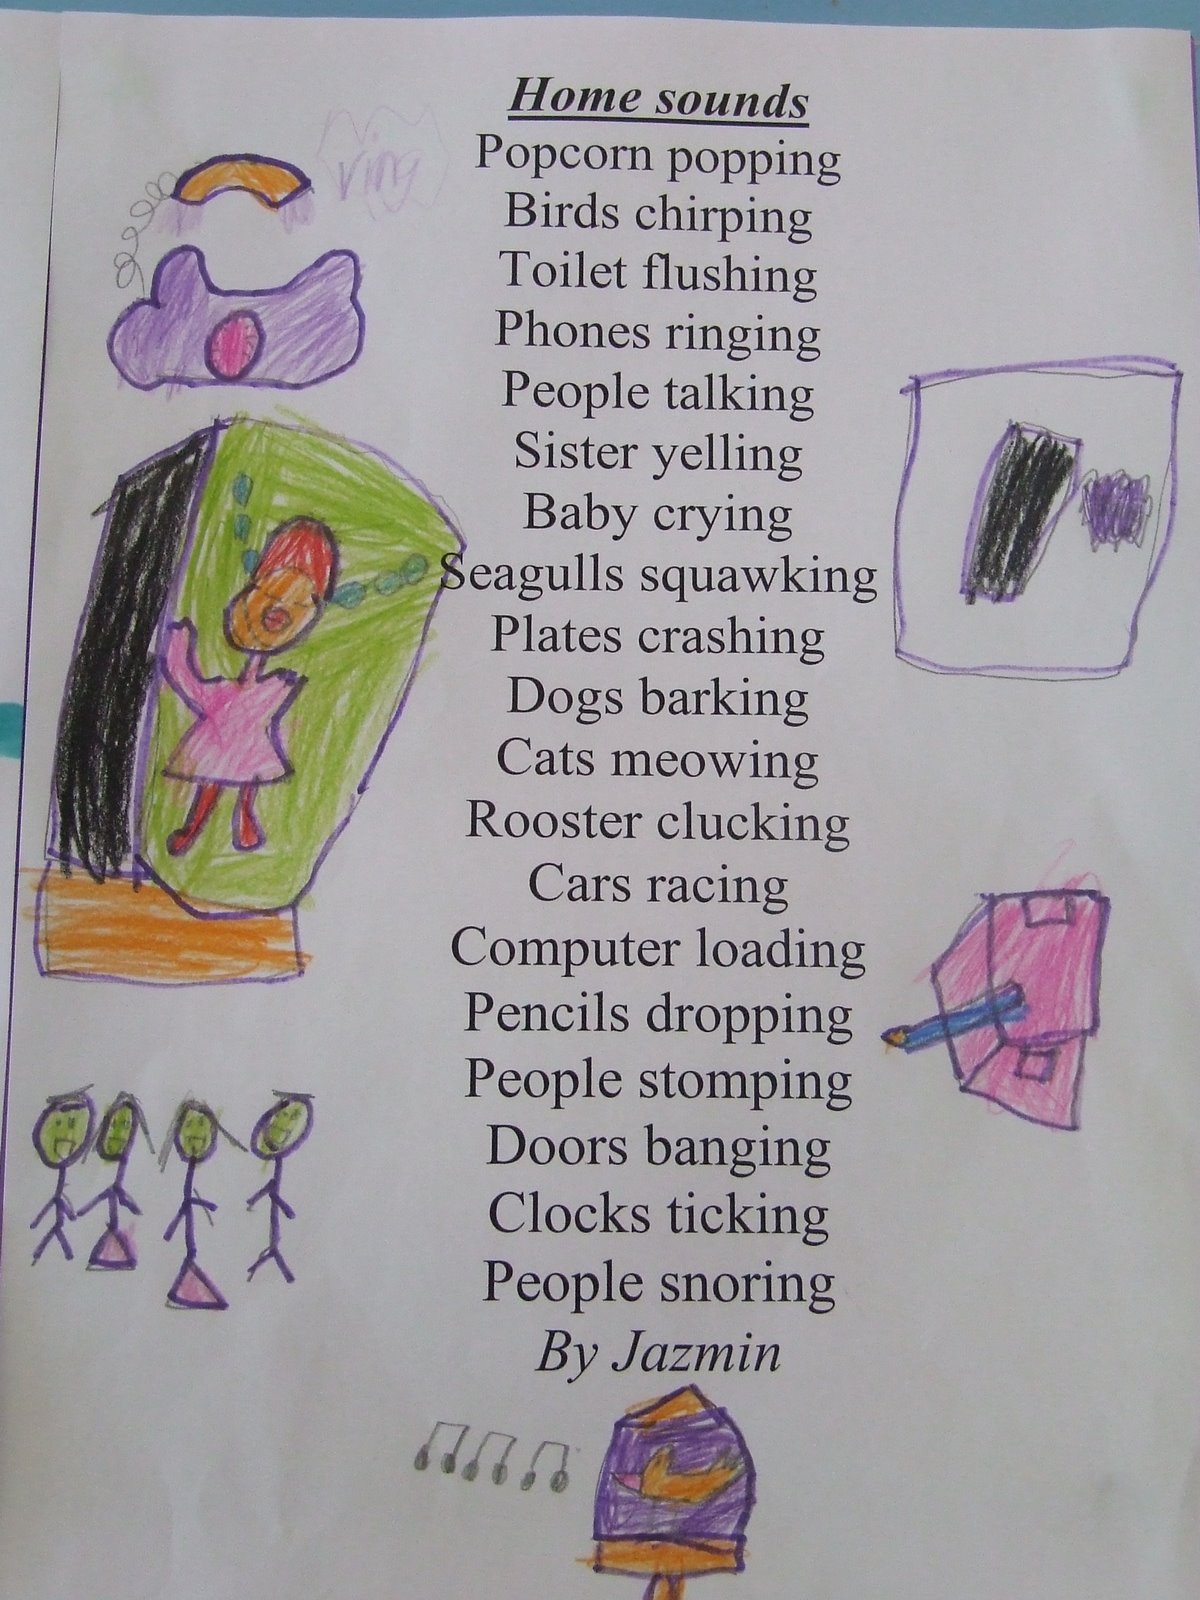 Home sounds
ring
Popcorn popping
Birds chirping
Toilet flushing
Phones ringing
People talking
Sister yelling
Baby crying
Seagulls squawking
Plates crashing
Dogs barking
Cats meowing
Rooster clucking
Cars racing
Computer loading
Pencils dropping
People stomping
Doors banging
Clocks ticking
People snoring
By Jazmin